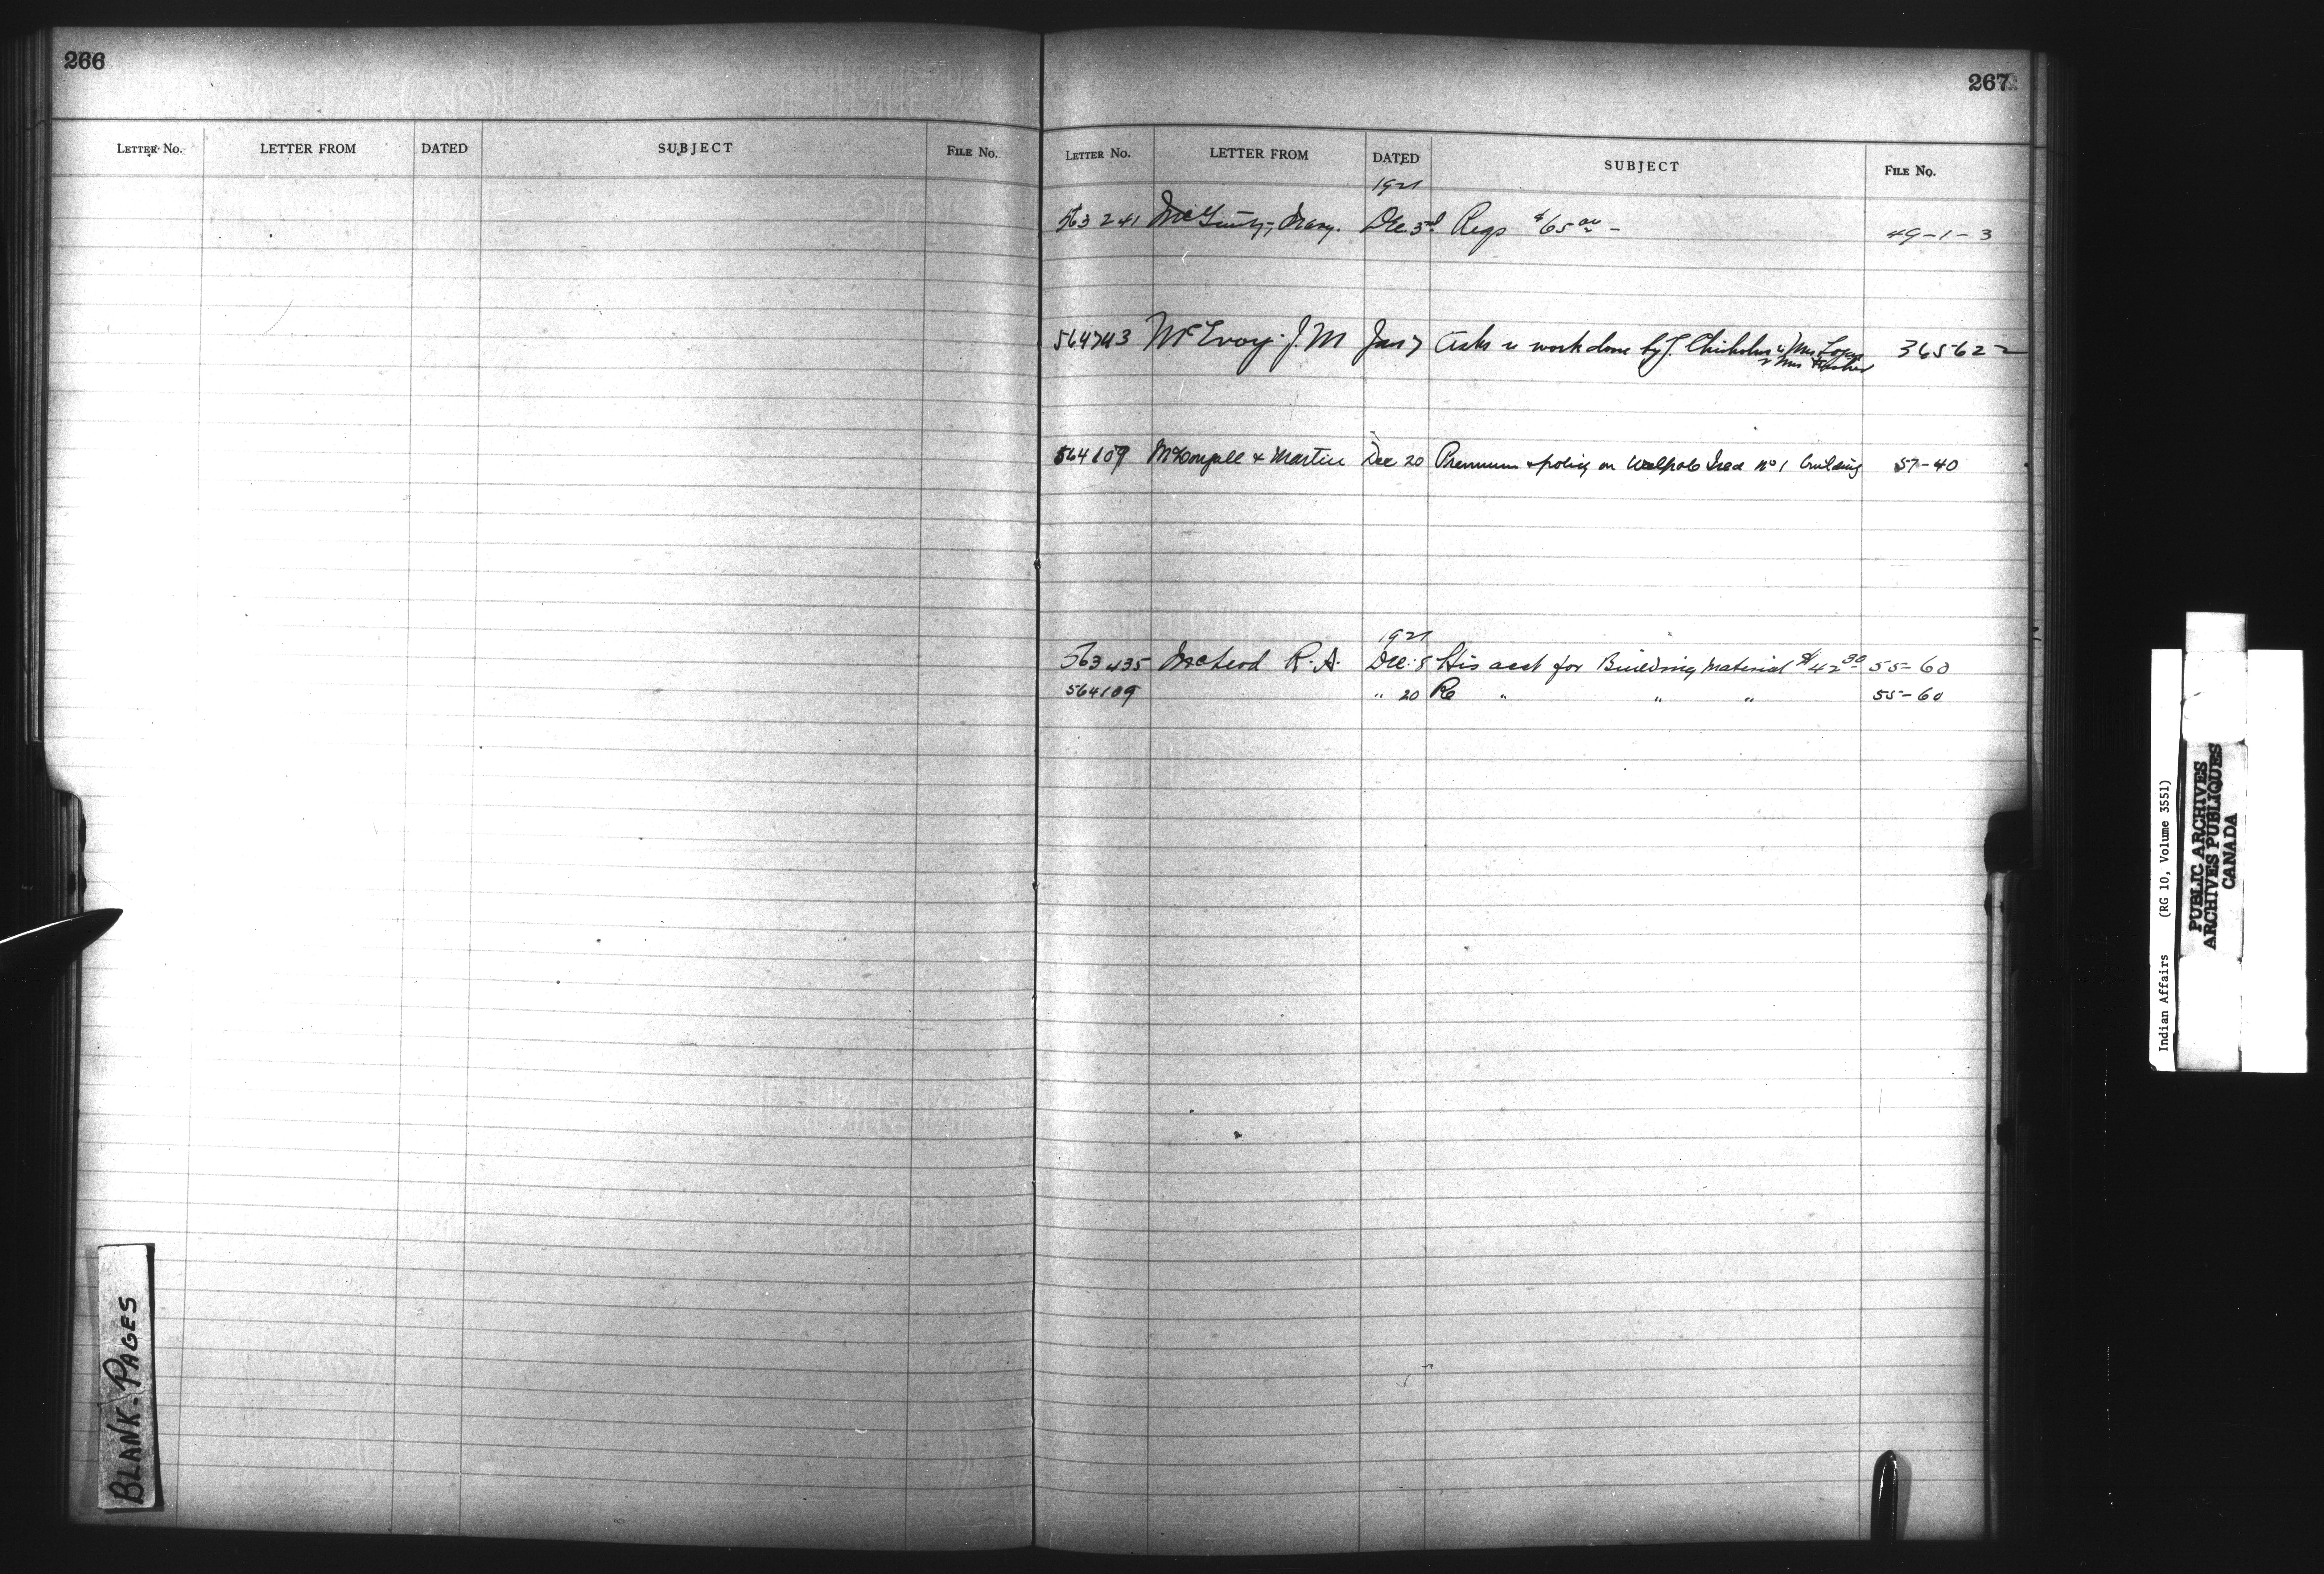 266
LETTER No. LETTER FROM DATED SUBJECT FILE No.
BLANK-PAGES
267
LETTER No. LETTER FROM DATED SUBJECT FILE No.
1921
563241 McGinty, Mary. Dec. 3rd Reqs $65.00 - 49-1-3
564743 McEvoy J. M Jan 7 Asks re work done by J. Chisholm 365622
564109 McDougall & Martin Dec 20 Premium & policy on Walpole Isld No 1 building 57-40
1921
563435 McLeod R. A. Dec. 8 His acct for Building Material $42 55-60
564109 " 20 Re " " " 55-60
Indian Affairs (RG 10, Volume 3551)
PUBLIC ARCHIVES
ARCHIVES PUBLIQUES
CANADA